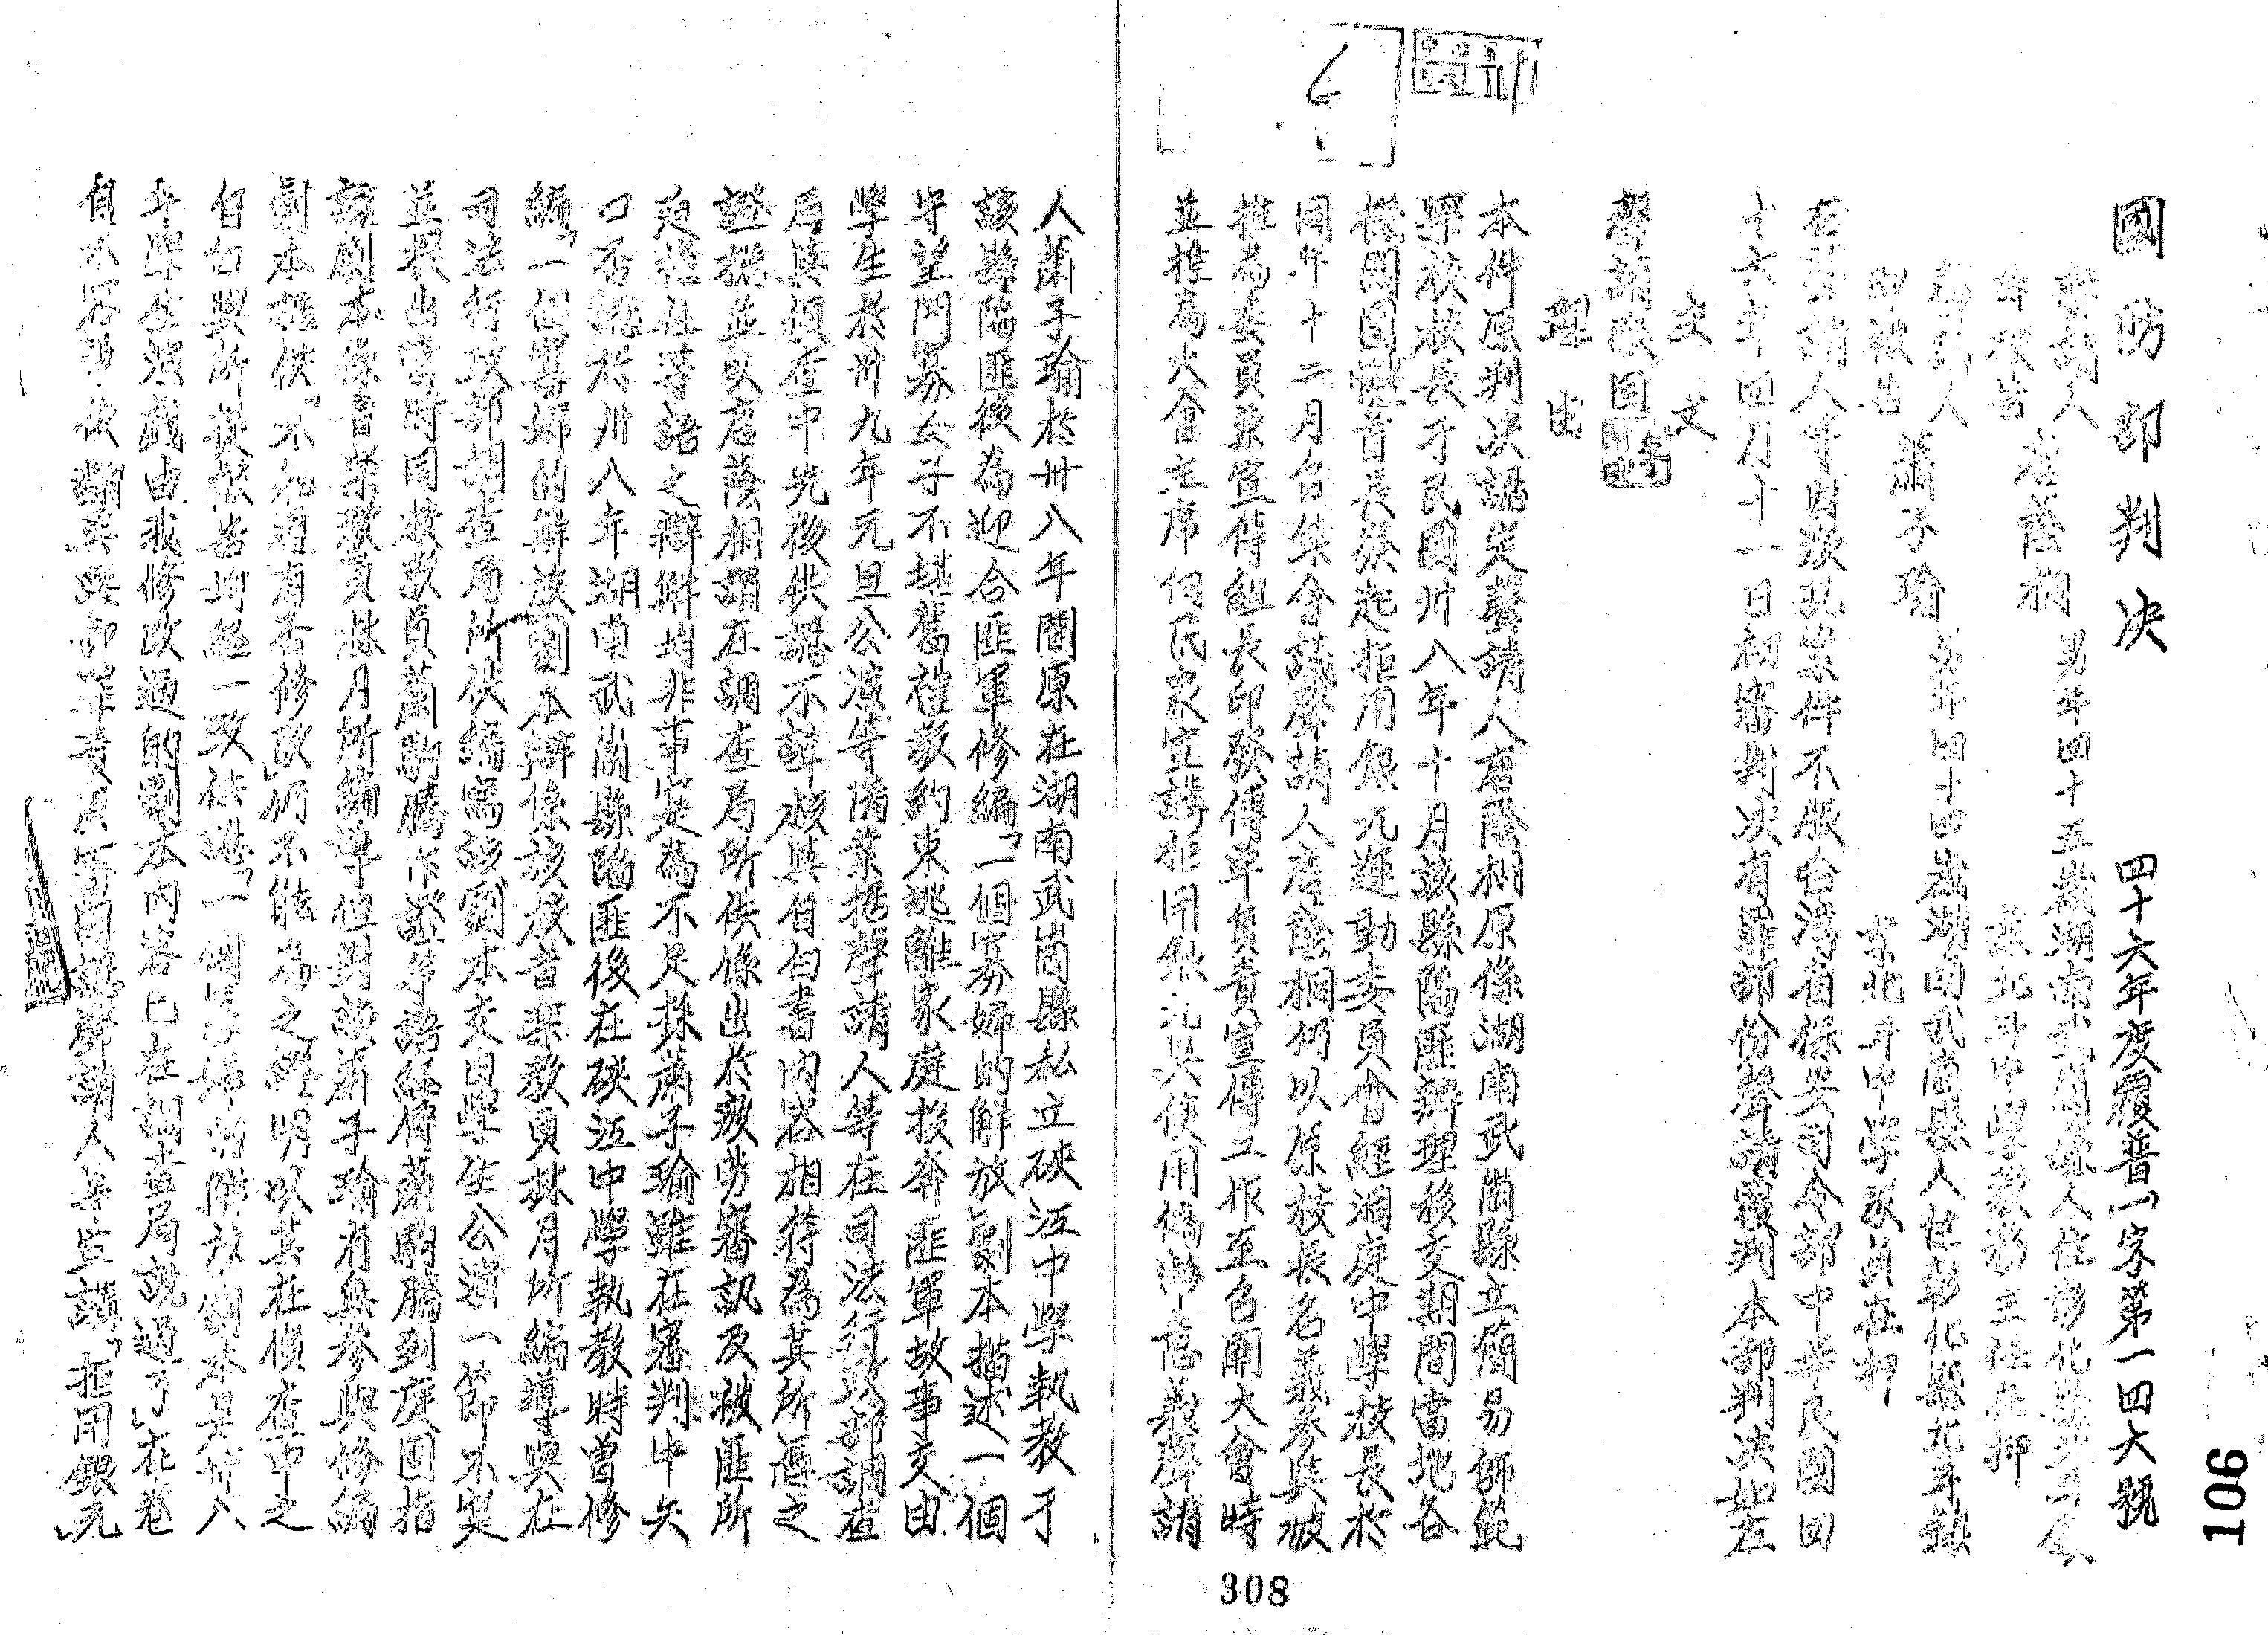 國防部判決 四十六年度覆普(一)字第一四六號
聲請人
即被告 唐蔭桐 男年四十五歲湖南武岡縣人住彰化縣北斗鎮
業北斗中學教務主任在押
聲請人
即被告 蕭子瑜 男年四十四歲湖南武岡縣人住彰化縣北斗鎮
業北斗中學教員在押
右聲請人等因叛亂案件不服台灣省保安司令部中華民國四
十六年四月十一日初審判決有罪部份聲請覆判本部判決如左
主文
聲請駁回
理由
本件原判決認定聲請人唐蔭桐原係湖南武岡縣立簡易師範
學校校長于民國卅八年十月該縣陷匪辦理移交期間當地各
機關團體首長發起拒用銀元運動委員會經洞庭中學校長於
同年十二月召集會議聲請人唐蔭桐仍以原校長名義參與被
推為委員兼宣傳組長印發傳單負責宣傳工作至召開大會時
並推為大會主席向民眾宣講拒用銀元與使用偽幣意義聲請
人蕭子瑜於卅八年間原在湖南武岡縣私立硤江中學執教于
該縣陷匪後為迎合匪軍修編「一個寡婦的解放」劇本描述一個
守望門寡女子不堪舊禮教約束逃離家庭投奔匪軍故事交由
學生於卅九年元旦公演等情業據聲請人等在司法行政部調查
局與偵查中先後供認不諱核與自白書內容相符為其所憑之
證據並以唐蔭桐謂在調查局所供係出於疲勞審訊及被匪所
迫於任等語之辯解均非事實為不足採蕭子瑜雖在審判中矢
口否認於卅八年湖南武岡縣陷匪後在硤江中學執教時曾修
編「一個寡婦的解放」劇本辯係該校音樂教員林月所編導與在
司法行政部調查局所供編寫該劇本交由學生公演一節不實
並提出當時同校教員蕭駒騰作證等語經傳蕭駒騰到庭固指
該劇本係音樂教員林月所編導但對該蕭子瑜有無參與修編
劇本據供「不知道有否修改」仍不能為之證明以其在偵查中之
自白與所提報告均經一致供認「一個寡婦的解放劇本是卅八
年學生演戲由我修改過的劇本內容已在調查局說過了」在卷
聲請人等上訴「拒用銀元
106
308